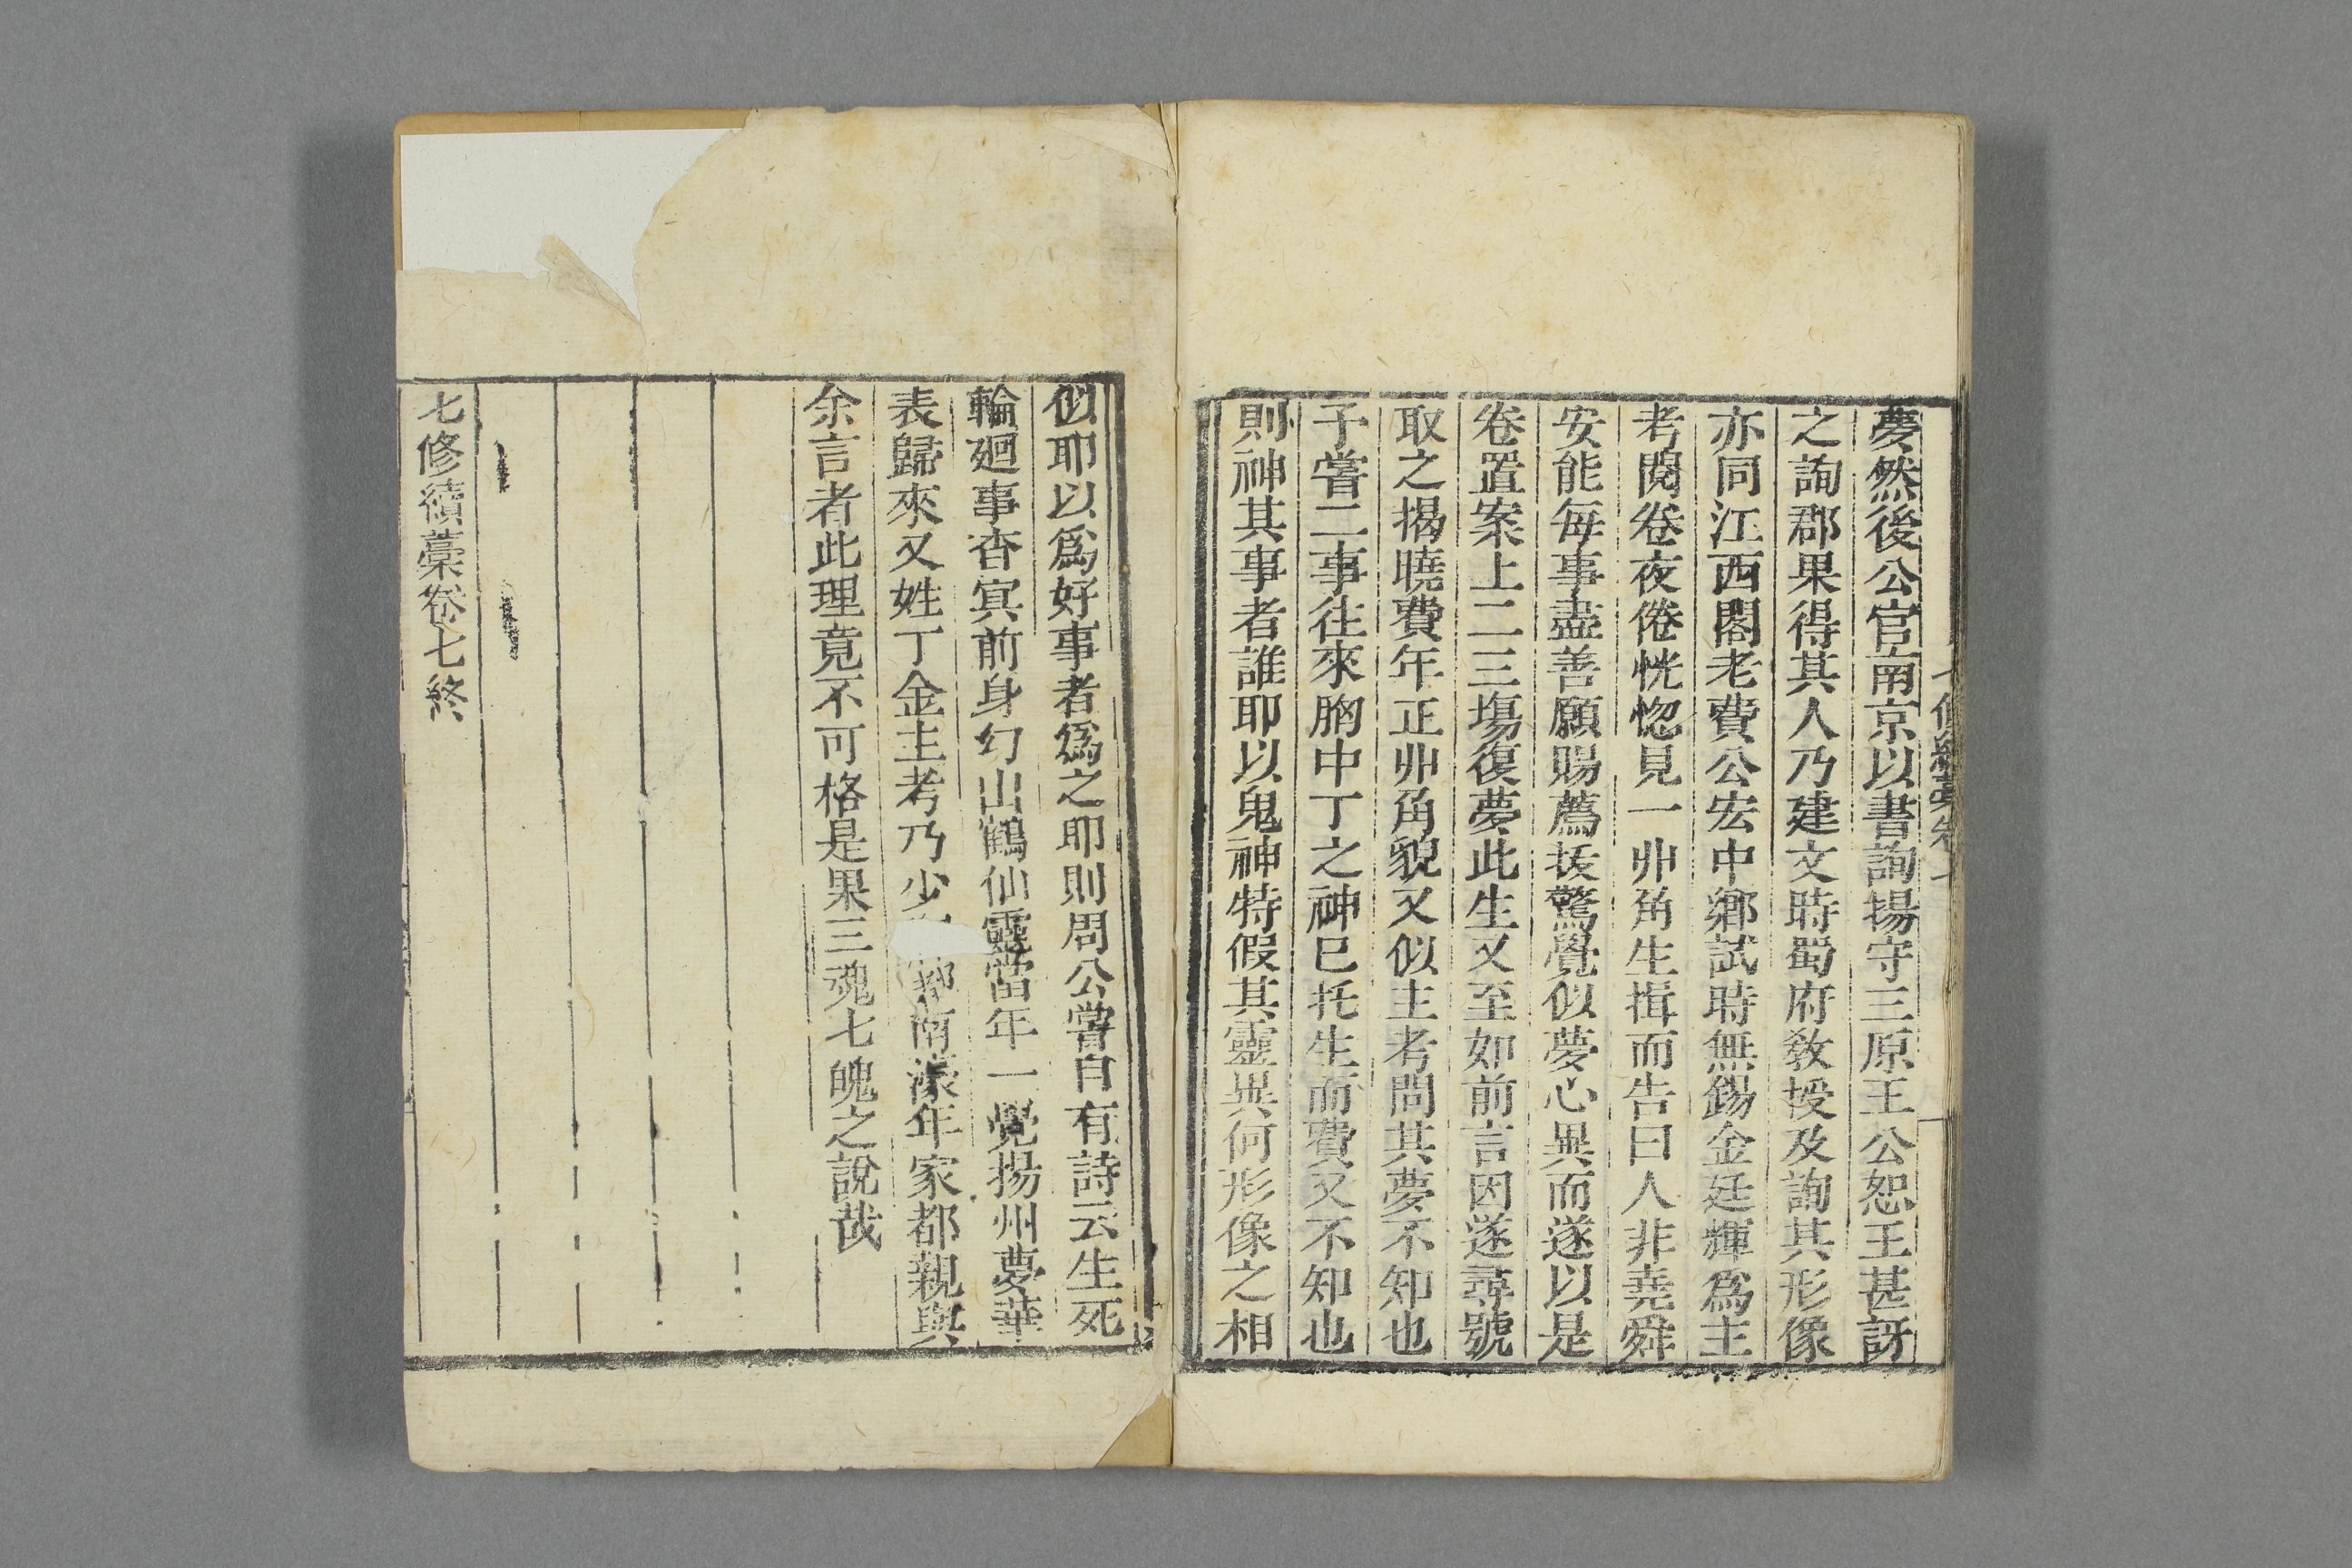 夢然後公官南京以書詢揚守三原王公恕王甚訝
之詢郡果得其人乃建文時蜀府敎授及詢其形像
亦同江西閣老費公宏中鄉試時無錫金廷輝爲主
考閱卷夜倦恍惚見一丱角生揖而告曰人非堯舜
安能每事盡善願賜薦拔驚覺似夢心異而遂以是
卷置案上二三塲復夢此生又至如前言因遂尋號
取之揭曉費年正丱角貌又似主考問其夢不知也
予嘗二事往來胸中丁之神已托生而費又不知也
則神其事者誰耶以鬼神特假其靈異何形像之相
似耶以爲好事者爲之耶則周公嘗自有詩云生死
輪廻事杳冥前身幻出鶴仙靈當年一覺揚州夢華
表歸來又姓丁金主考乃少南濠年家都親與
余言者此理竟不可格是果三魂七魄之說哉
七修續藁卷七終